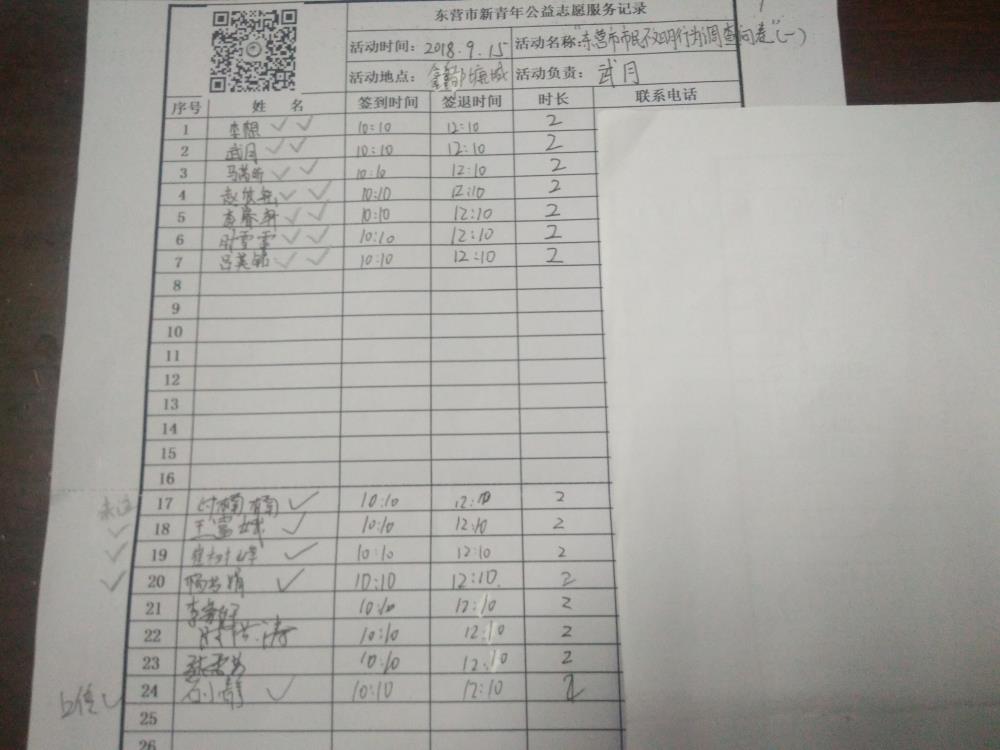 东营市新青年公益志愿服务记录
活动时间: 2018.9.15 活动名称: "东营市市民不文明行为调查问卷"(一)
活动地点: 鑫都塘城 活动负责: 武月
序号 姓 名 签到时间 签退时间 时长 联系电话
1 李想 ✓✓ 10:10 12:10 2
2 武月 ✓✓ 10:10 12:10 2
3 ✓✓ 10:10 12:10 2
4 ✓✓ 10:10 12:10 2
5 ✓✓ 10:10 12:10 2
6 时雪雪 ✓✓ 10:10 12:10 2
7 ✓✓ 10:10 12:10 2
8
9
10
11
12
13
14
15
16
17 付楠楠 ✓ 10:10 12:10 2
✓ 18 ✓ 10:10 12:10 2
✓ 19 ✓ 10:10 12:10 2
✓ 20 ✓ 10:10 12:10 2
21 10:10 12:10 2
22 10:10 12:10 2
23 10:10 12:10 2
✓ 24 石小静 ✓ 10:10 12:10 2
25
26